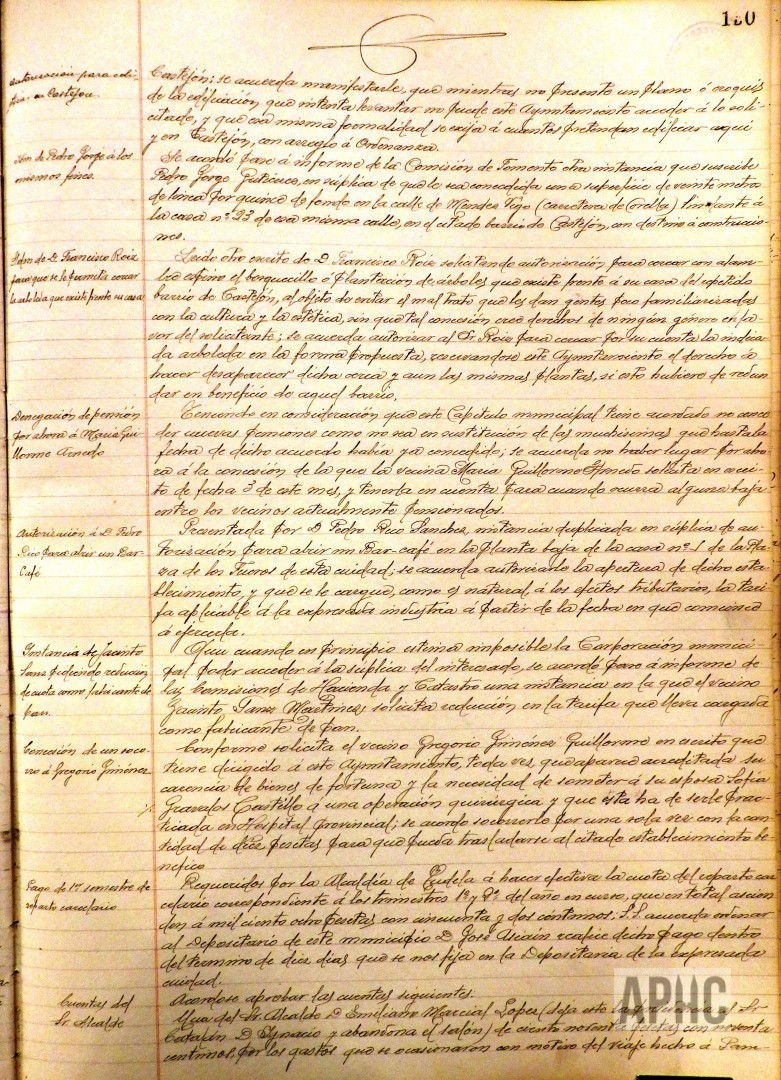 180
autorización para edi-
ficar en Castejón.
Castejón: se acuerda manifestarle, que mientras no presente un plano ó croquis
de la edificación que intenta levantar no puede este Ayuntamiento acceder á lo soli-
citado, y que esa misma formalidad se exija á cuantos pretendan edificar aquí
y en Castejón, con arreglo á Ordenanza.
Idem de Pedro Jorge á los
mismos fines.
Se acordó pase á informe de la Comisión de Fomento otra instancia que suscribe
Pedro Jorge Gutierrez, en súplica de que le sea concedida una superficie de veinte metros
de línea por quince de fondo en la calle de Mendez Vigo (carretera de Corella) limitante á
la casa nº 23 de esa misma calle, en el citado barrio de Castejón, con destino á construccio-
nes.
Idem de D. Francisco Roiz
para que se le permita cercar
la arboleda que existe frente su casa
Leido otro escrito de D. Francisco Roiz solicitando autorización para cercar con alam-
bre espino el bosquecillo ó plantación de árboles que existe frente á su casa del repetido
barrio de Castejón, al objeto de evitar el mal trato que les dan gentes poco familiarizadas
con la cultura y la estética, sin que tal concesión cree derechos de ningún género en fa-
vor del solicitante; se acuerda autorizar al Sr. Roiz para cercar por su cuenta la indica-
da arboleda en la forma propuesta, reservandose este Ayuntamiento el derecho á
hacer desaparecer dicha cerca y aun las mismas plantas, si esto hubiere de redun-
dar en beneficio de aquel barrio.
Denegación de pensión
por ahora á Maria Gui-
llorme
Teniendo en consideración que este Capitulo municipal tiene acordado no conce-
der nuevas pensiones como no sea en sustitución de las muchisimas que hasta la
fecha de dicho acuerdo habia ya concedido; se acuerda no haber lugar por aho-
ra á la concesión de la que la vecina Maria Guillorme solicita en escri-
to de fecha 3 de este mes, y tenerla en cuenta para cuando ocurra alguna baja
entre los vecinos actualmente pensionados.
Autorización á D. Pedro
Rico para abrir un Bar-
Café
Presentada por D. Pedro Rico Sanchez, instancia duplicada en súplica de au-
torización para abrir un Bar-café en la planta baja de la casa nº 1 de la Pla-
za de los Fueros de esta ciudad; se acuerda autorizarle la apertura de dicho esta-
blecimiento, y que se le cargue, como es natural, á los efectos tributarios, la tari-
fa aplicable á la expresada industria á partir de la fecha en que comience
á ejercerla.
Instancia de Jacinto
Sanz pidiendo reducción
de cuota como fabricante de
pan.
Aun cuando en principio estima imposible la Corporación munici-
pal poder acceder á la súplica del interesado, se acordó pase á informe de
las Comisiones de Hacienda y Catastro una instancia en la que el vecino
Jacinto Sanz Martinez solicita reducción en la tarifa que lleva cargada
como fabricante de pan.
Concesión de un soco-
rro á Gregorio Giménez
Conforme solicita el vecino Gregorio Giménez Guillorme en escrito que
tiene dirigido á este Ayuntamiento, toda vez, que aparece acreditada su
carencia de bienes de fortuna y la necesidad de someter á su esposa Sofia
Gravalos Castillo á una operación quirúrgica y que esta ha de serle prac-
ticada en Hospital provincial; se acordó socorrerlo por una sola vez con la can-
tidad de diez pesetas para que pueda trasladarse al citado establecimiento be-
néfico
Pago de 1er semestre de
reparto carcelario
Requeridos por la Alcaldía de Tudela á hacer efectiva la cuota del reparto car-
celario correspondiente á los trimestres 1º y 2º del año en curso, que en total ascien-
den á mil ciento ocho pesetas con cincuenta y dos céntimos: S.S. acuerda ordenar
al Depositario de este municipio D. José Asiain realice dicho pago dentro
del termino de diez dias que se nos fija en la Depositaria de la expresada
ciudad.
Cuentas del
Sr. Alcalde
Acordose aprobar las cuentas siguientes.
Una del Sr. Alcalde D. Emiliano Marcial Lopez (deja este la presidencia al Sr.
Catalán D. Ignacio y abandona el salón) de ciento noventa pesetas con noventa
centimos, por los gastos que se ocasionaron con motivo del viaje hecho á Pam-
APHC